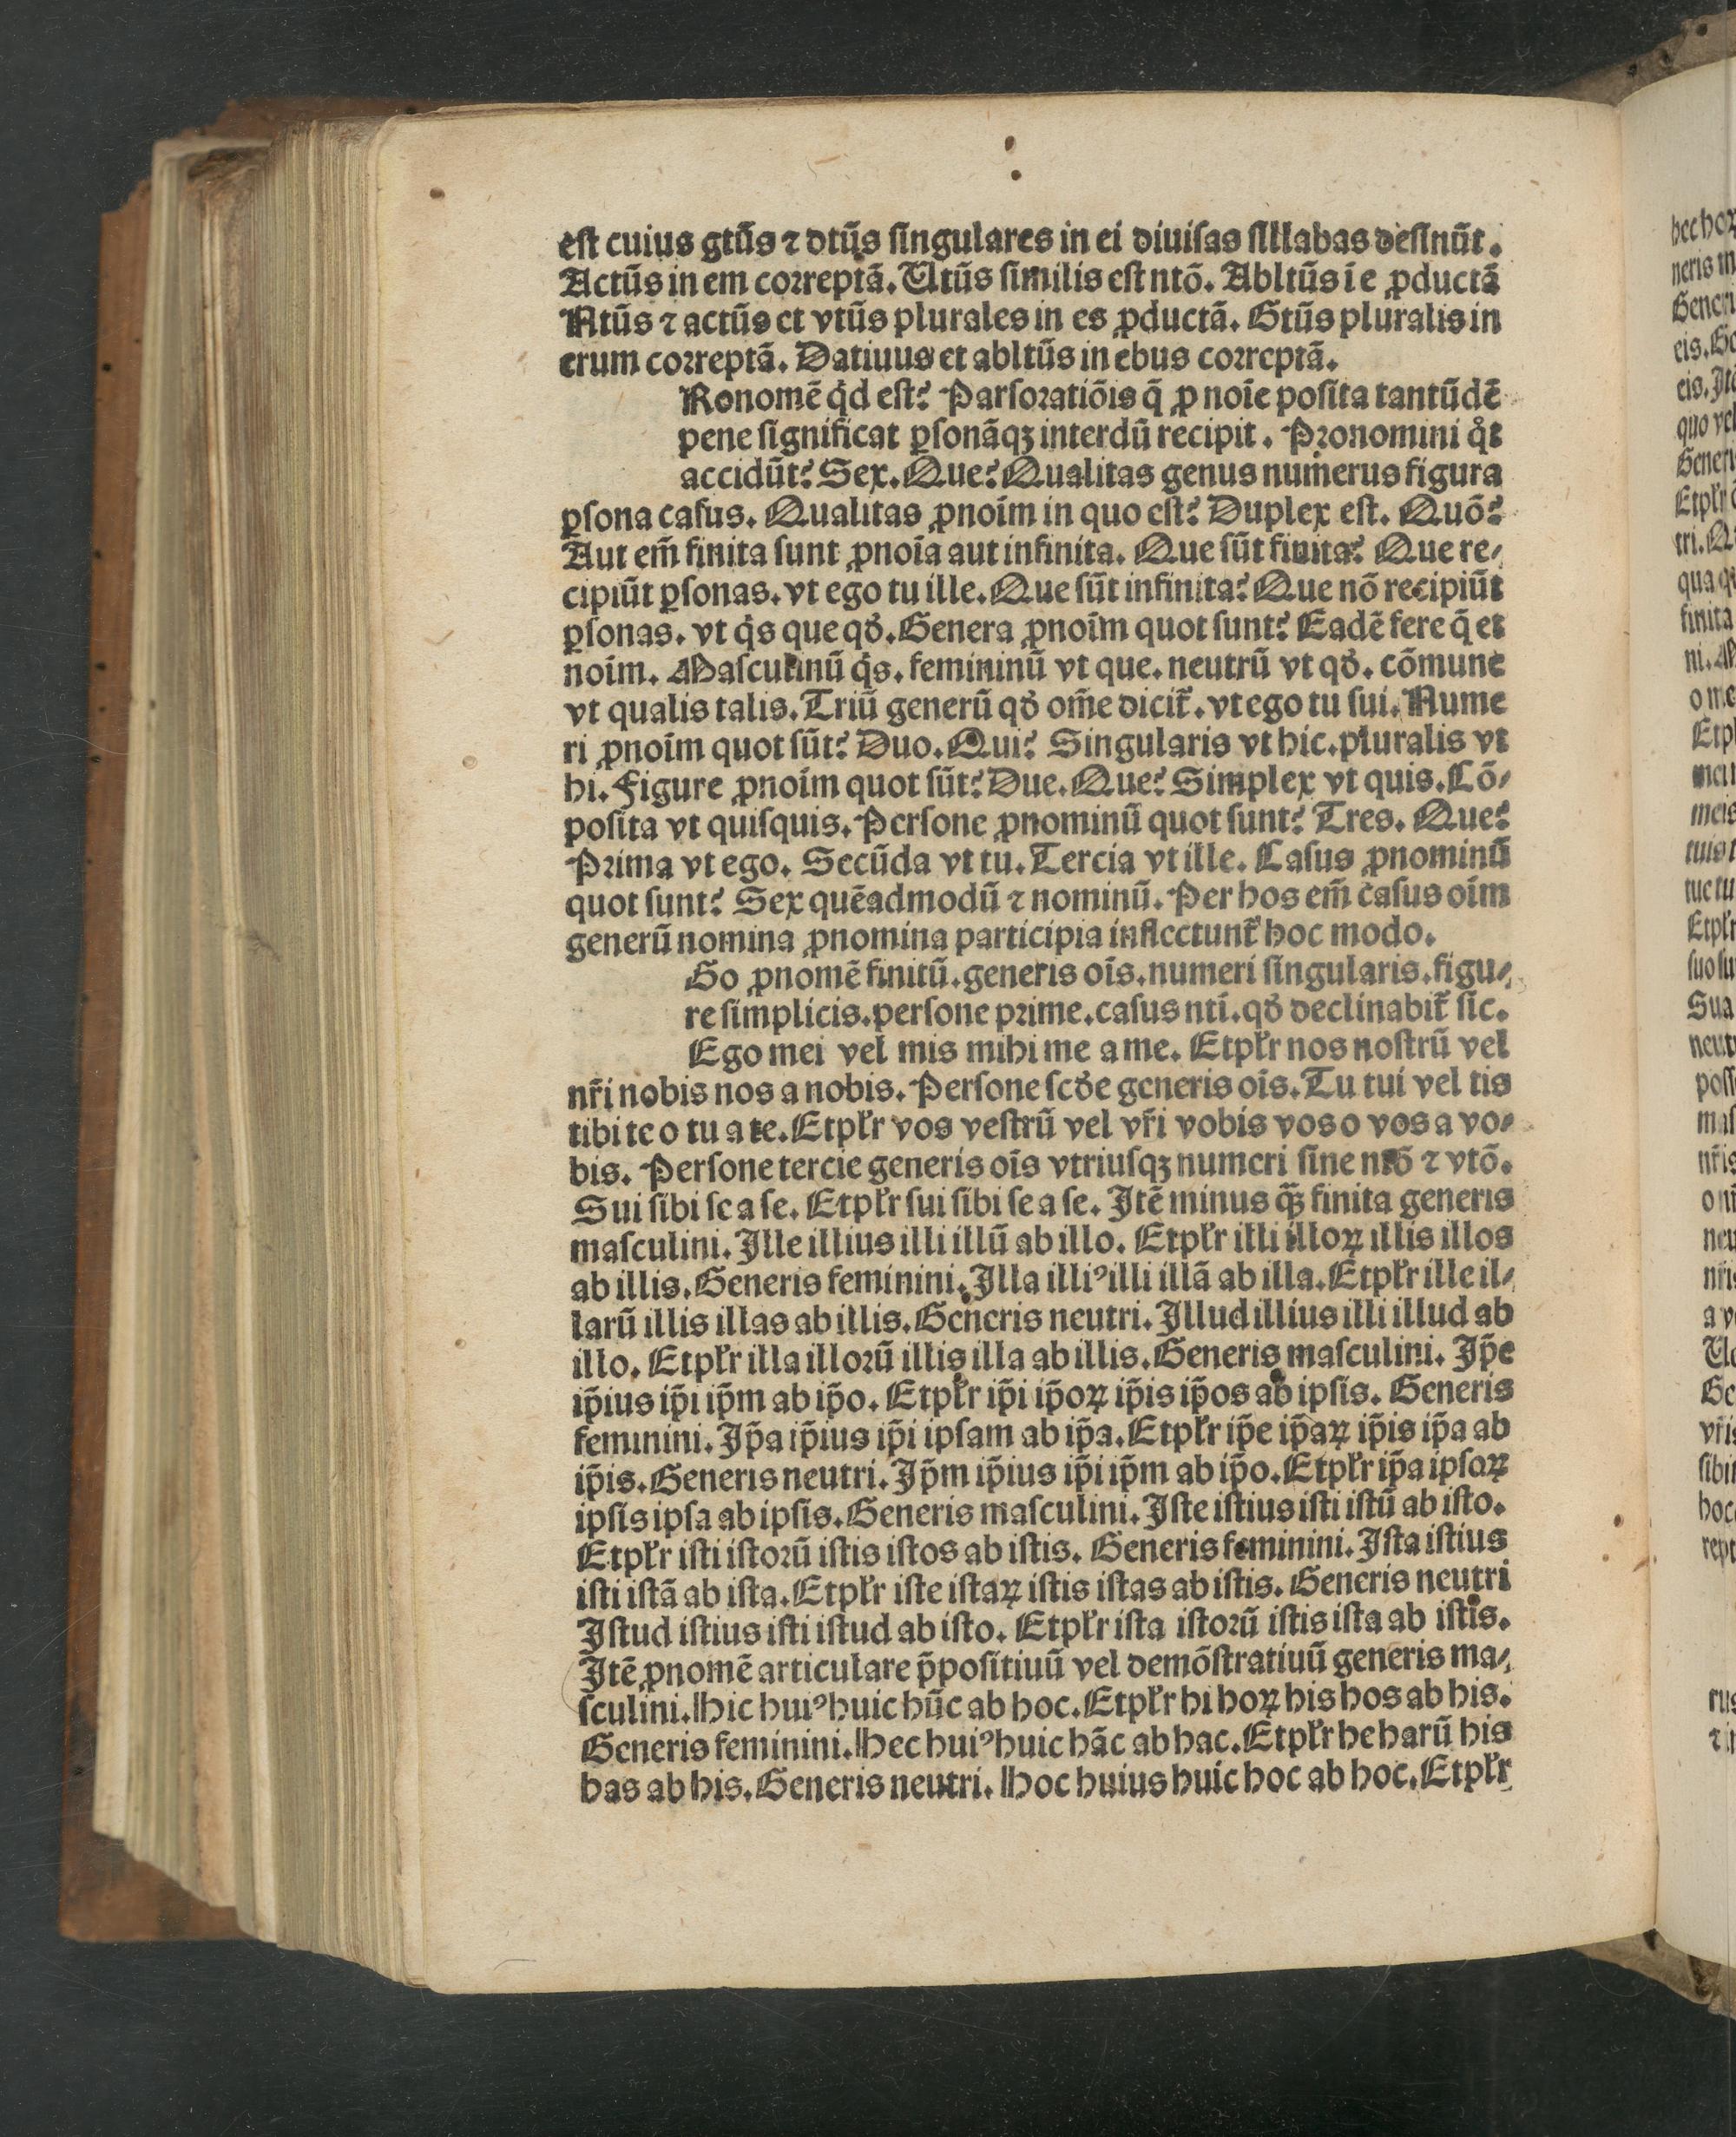 est cuius gtũs ⁊ dtũs singulares in ei diuisas sillabas desinũt.
Actũs in em correptã. Vtũs similis est ntõ. Abltũs ĩ e ꝓductã
Ntũs ⁊ actũs et vtũs plurales in es ꝓductã. Gtũs pluralis in
erum correptã. Datiuus et abltũs in ebus correptã.
Ronomẽ qͥd est? Pars oratiõis q̃ ꝓ noĩe posita tantũdẽ
pene significat ꝑsonãqꝫ interdũ recipit. Pronomini qͦt
accidũt? Sex. Que? Qualitas genus numerus figura
ꝑsona casus. Qualitas ꝓnoĩm in quo est? Duplex est. Quõ?
Aut em̃ finita sunt ꝓnoĩa aut infinita. Que sũt finita? Que re⸗
cipiũt ꝑsonas. vt ego tu ille. Que sũt infinita? Que nõ recipiũt
ꝑsonas. vt qͥs que qđ. Genera ꝓnoĩm quot sunt? Eadẽ fere q̃ et
noĩm. Masculinũ qͥs. femininũ vt que. neutrũ vt qđ. cõmune
vt qualis talis. Triũ generũ qđ om̃e dicit᷑. vt ego tu sui. Nume
ri ꝓnoĩm quot sũt? Duo. Qui? Singularis vt hic. pluralis vt
hi. Figure ꝓnoĩm quot sũt? Due. Que? Simplex vt quis. Cõ⸗
posita vt quisquis. Persone ꝓnominũ quot sunt? Tres. Que?
Prima vt ego. Secũda vt tu. Tercia vt ille. Casus ꝓnominũ
quot sunt? Sex quẽadmodũ ⁊ nominũ. Per hos em̃ casus oĩm
generũ nomina ꝓnomina participia inflectunt᷑ hoc modo.
Go ꝓnomẽ finitũ. generis oĩs. numeri singularis. figu⸗
re simplicis. persone prime. casus ntĩ. qđ declinabit᷑ sic.
Ego mei vel mis mihi me a me. Et pl̃r nos nostrũ vel
nr̃i nobis nos a nobis. Persone scđe generis oĩs. Tu tui vel tis
tibi te o tu a te. Et pl̃r vos vestrũ vel vr̃i vobis vos o vos a vo⸗
bis. Persone tercie generis oĩs vtriusqꝫ numeri sine ntõ ⁊ vtõ.
Sui sibi se a se. Et pl̃r sui sibi se a se. Itẽ minus qꝫ̃ finita generis
masculini. Ille illius illi illũ ab illo. Et pl̃r illi illoꝝ illis illos
ab illis. Generis feminini. Illa illiꝰ illi illã ab illa. Et pl̃r ille il⸗
larũ illis illas ab illis. Generis neutri. Illud illius illi illud ab
illo. Et pl̃r illa illorũ illis illa ab illis. Generis masculini. Ip̃e
ip̃ius ip̃i ip̃m ab ip̃o. Et pl̃r ip̃i ip̃oꝝ ip̃is ip̃os ab ipsis. Generis
feminini. Ip̃a ip̃ius ip̃i ipsam ab ip̃a. Et pl̃r ip̃e ip̃aꝝ ip̃is ip̃a ab
ip̃is. Generis neutri. Ip̃m ip̃ius ip̃i ip̃m ab ip̃o. Et pl̃r ip̃a ipsoꝝ
ipsis ipsa ab ipsis. Generis masculini. Iste istius isti istũ ab isto.
Et pl̃r isti istorũ istis istos ab istis. Generis feminini. Ista istius
isti istã ab ista. Et pl̃r iste istaꝝ istis istas ab istis. Generis neutri
Istud istius isti istud ab isto. Et pl̃r ista istorũ istis ista ab istis.
Itẽ ꝓnomẽ articulare p̃positiuũ vel demõstratiuũ generis ma⸗
sculini. Hic huiꝰ huic hũc ab hoc. Et pl̃r hi hoꝝ his hos ab his.
Generis feminini. Hec huiꝰ huic hãc ab hac. Et pl̃r he harũ his
has ab his. Generis neutri. Hoc huius huic hoc ab hoc. Et pl̃r